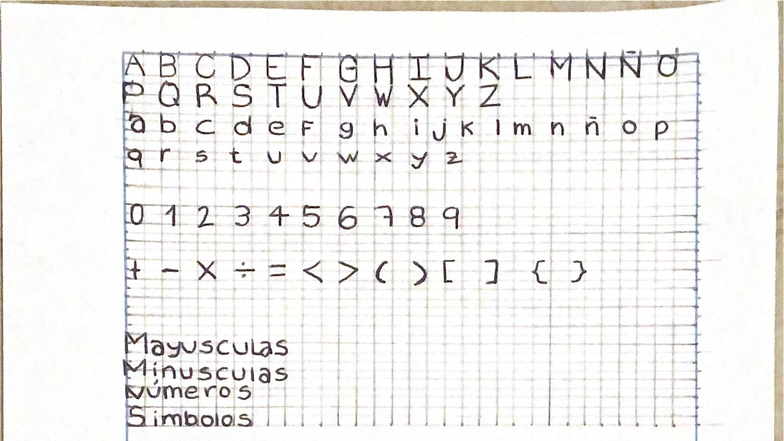 A B C D E F G H I J K L M N Ñ O
P Q R S T U V W X Y Z
a b c d e F g h i j k l m n ñ o p
q r s t u v w x y z
0 1 2 3 4 5 6 7 8 9
+ - x ÷ = < > ( ) [ ] { }
Mayusculas
Minusculas
Números
Simbolos